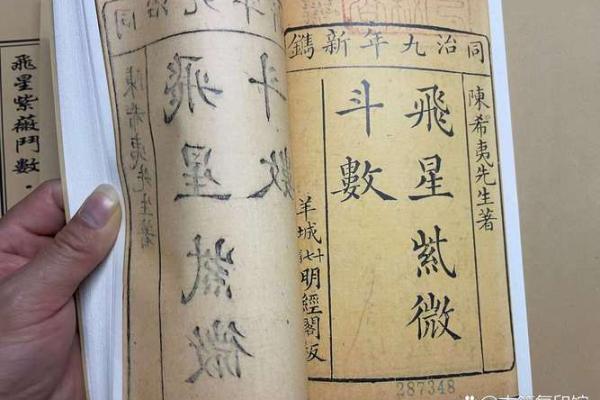 同治九年新鐫
陳希夷先生著
飛星紫微
斗數
羊城
明經閣板
287348
飛星紫薇鬥數